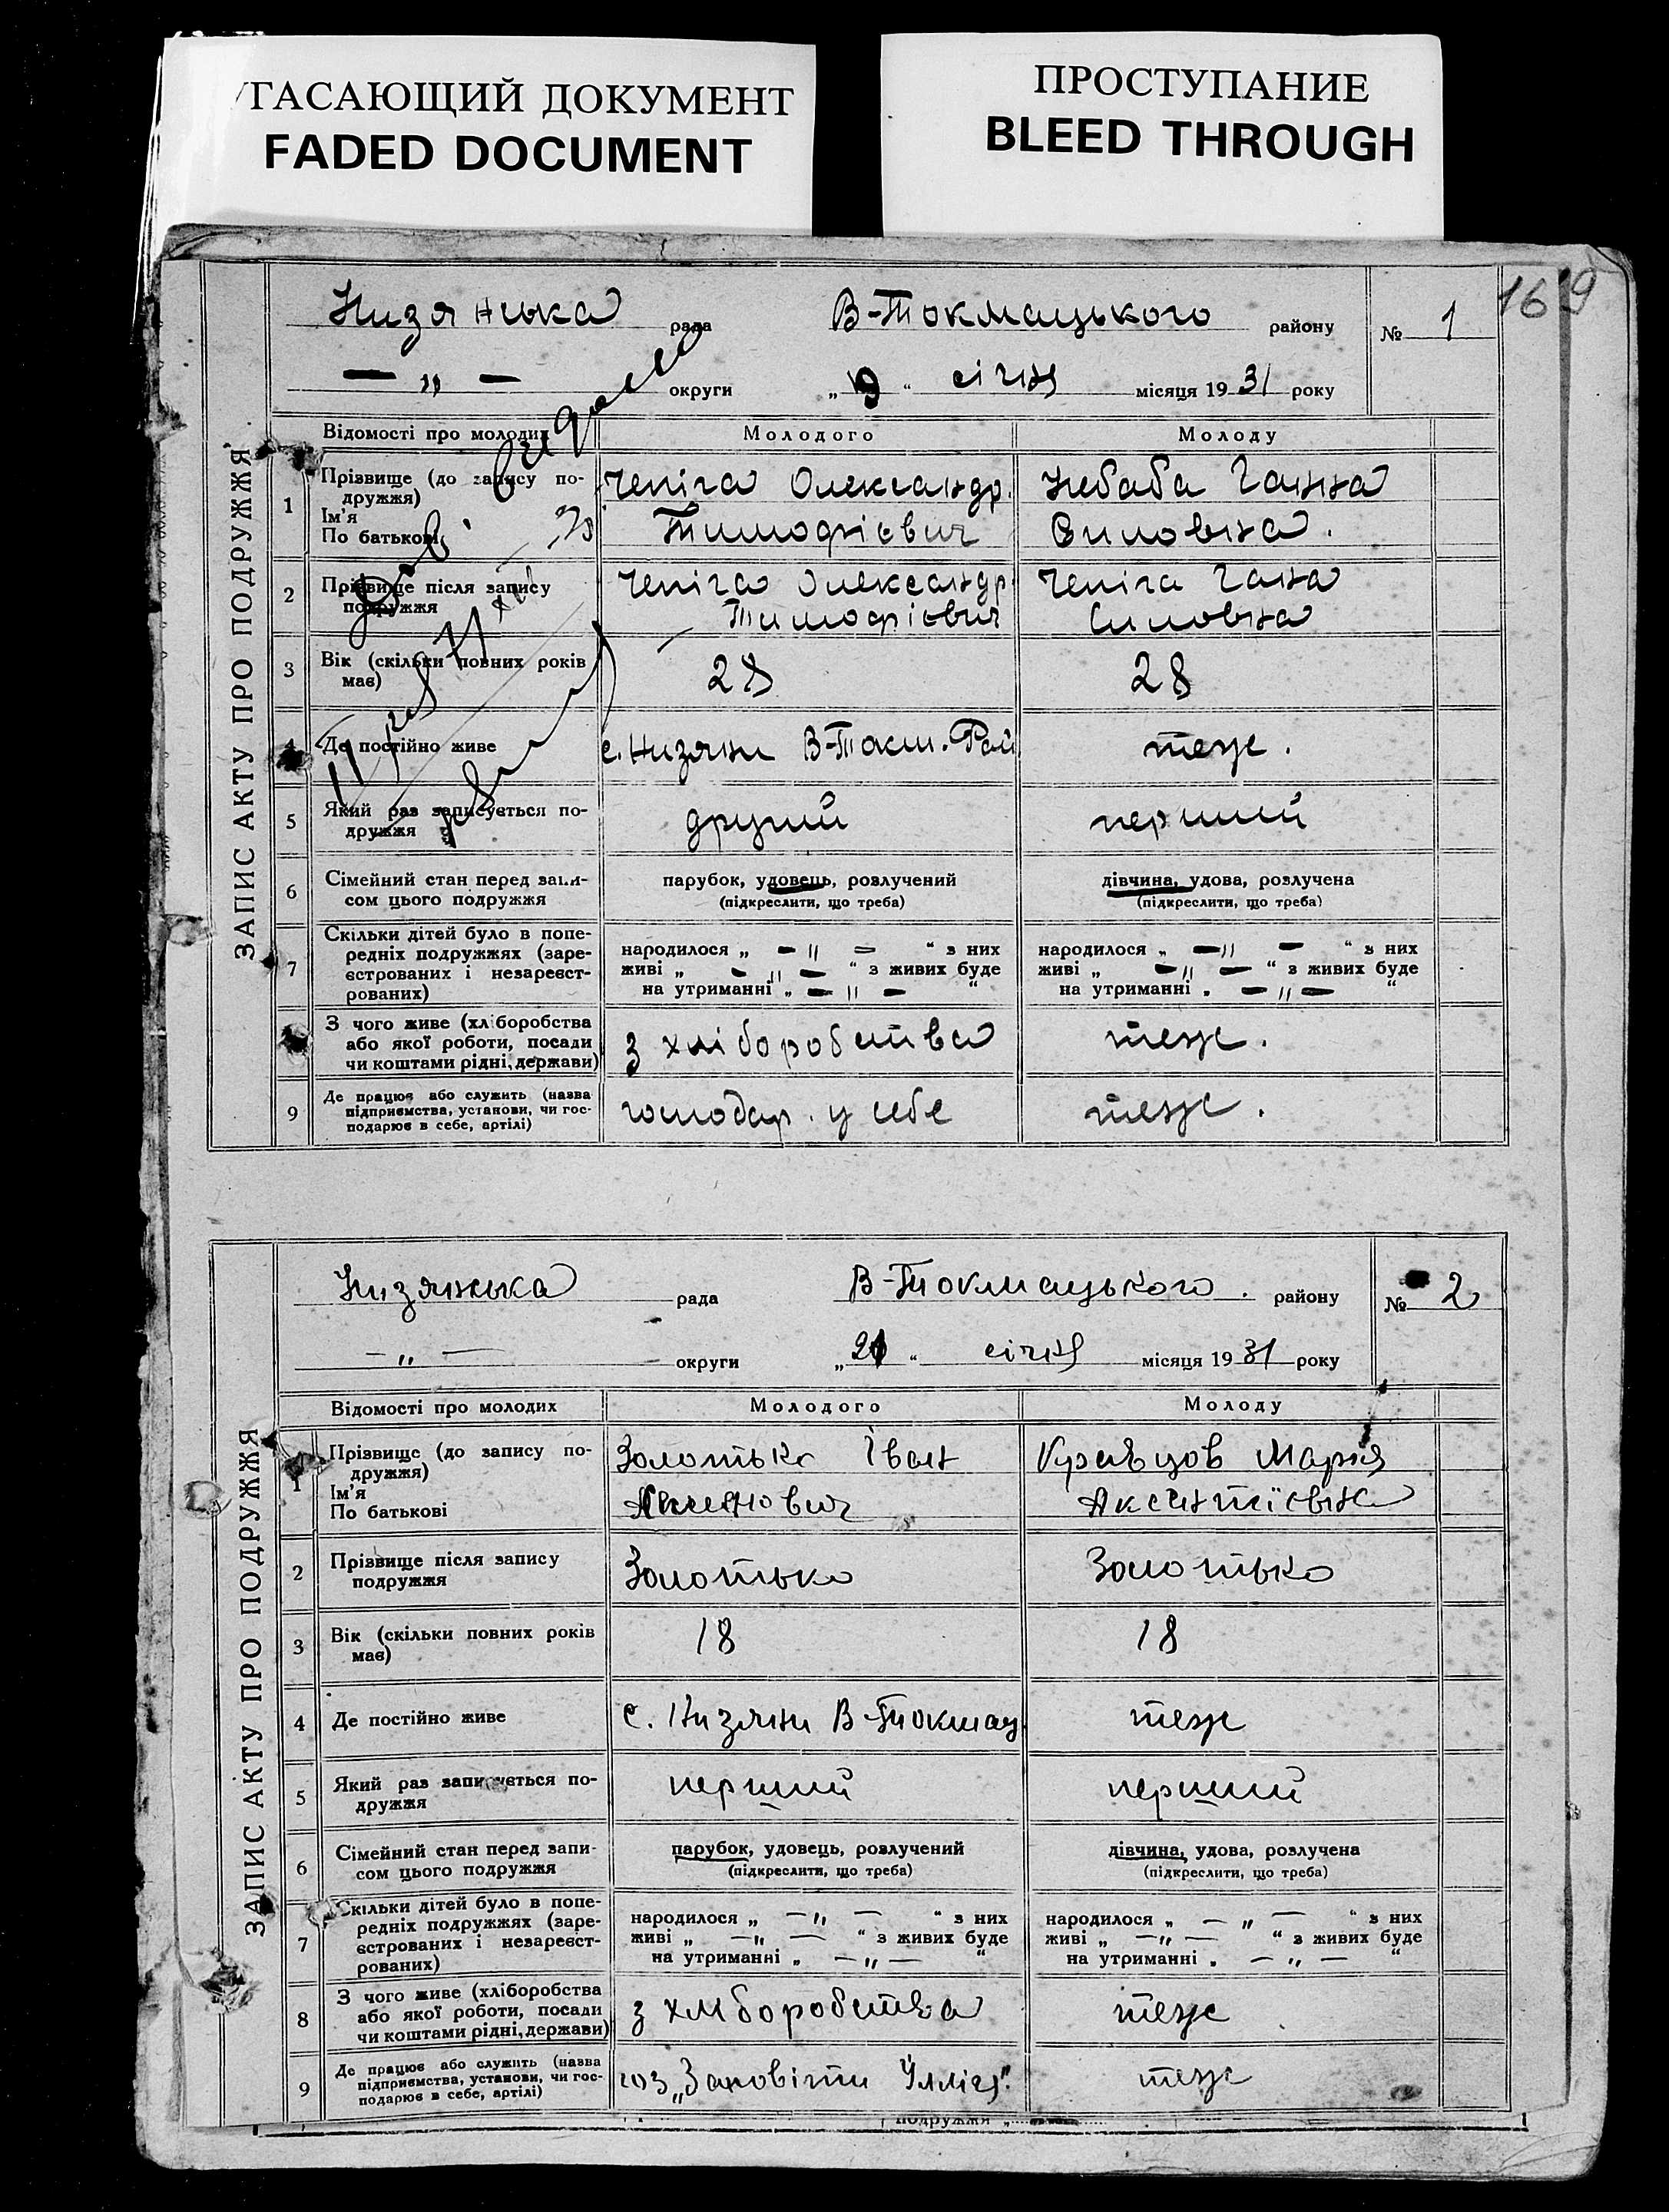 УГАСАЮЩИЙ ДОКУМЕНТ
FADED DOCUMENT
ПРОСТУПАНИЕ
BLEED THROUGH
169
ЗАПИС АКТУ ПРО ПОДРУЖЖЯ
Низянська рада В-Токмацького району № 1
— „ — округи „ 9 “ січня місяця 1931 року
Відомості про молодих Молодого Молоду
1 Прізвище (до запису по-
дружжя)
Ім'я
По батькові
Чепіга Олександр
Тимофієвич
Небаба Ганна
Силовна.
2 Прізвище після запису
подружжя
Чепіга Олександр
Тимофієвич
Чепіга Гана
Силовна
3 Вік (скільки повних років
має)
28 28
4 Де постійно живе с. Низяни В-Токм. Рай теж.
5 Який раз записується по-
дружжя
другий перший
6 Сімейний стан перед запи-
сом цього подружжя
парубок, удовець, розлучений
(підкреслити, що треба)
дівчина, удова, розлучена
(підкреслити, що треба)
7 Скільки дітей було в попе-
редніх подружжях (заре-
єстрованих і незареєст-
рованих)
народилося „ — „ — “ з них
живі „ — „ — “ з живих буде
на утриманні „ — „ — “
народилося „ — „ — “ з них
живі „ — „ — “ з живих буде
на утриманні „ — „ — “
8 З чого живе (хліборобства
або якої роботи, посади
чи коштами рідні, держави)
з хліборобства теж.
9 Де працює або служить (назва
підприємства, установи, чи гос-
подарює в себе, артілі)
господар. у себе теж.
ЗАПИС АКТУ ПРО ПОДРУЖЖЯ
Низянська рада В-Токмацького. району № 2
— „ — округи „ 21 “ січня місяця 1931 року
Відомості про молодих Молодого Молоду
1 Прізвище (до запису по-
дружжя)
Ім'я
По батькові
Золотько Іван
Кравцов Марія
Аксентіївна
2 Прізвище після запису
подружжя
Золотько Золотько
3 Вік (скільки повних років
має)
18 18
4 Де постійно живе с. Низяни В-Токмац теж
5 Який раз записується по-
дружжя
перший перший
6 Сімейний стан перед запи-
сом цього подружжя
парубок, удовець, розлучений
(підкреслити, що треба)
дівчина, удова, розлучена
(підкреслити, що треба)
7 Скільки дітей було в попе-
редніх подружжях (заре-
єстрованих і незареєст-
рованих)
народилося „ — „ — “ з них
живі „ — „ — “ з живих буде
на утриманні „ — „ — “
народилося „ — „ — “ з них
живі „ — „ — “ з живих буде
на утриманні „ — „ — “
8 З чого живе (хліборобства
або якої роботи, посади
чи коштами рідні, держави)
з хліборобства теж
9 Де працює або служить (назва
підприємства, установи, чи гос-
подарює в себе, артілі)
„Заповіти Ілліча". теж
подружжя